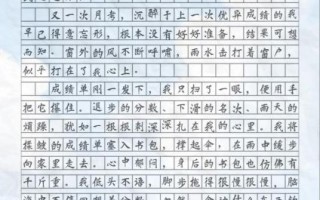 又一次月考，沉醉于上一次优异成绩的我
早已得意忘形，根本没有好好准备，结果可想
而知。窗外的风不断呼啸，雨水击打着窗户，
似乎打在了我心上。
成绩单刚一发下，我只扫了一眼，便用手
把它摁住。退步的分数、下滑的名次、雨天的
烦躁，犹如一根根刺深深扎在我的心里。我将
揉皱的成绩单塞入书包，撑起伞，在雨中缓步
向家里走去。心中郁闷，身后的书包也仿佛有
千斤重。我低头不语，脚步拖得很慢很慢，脑